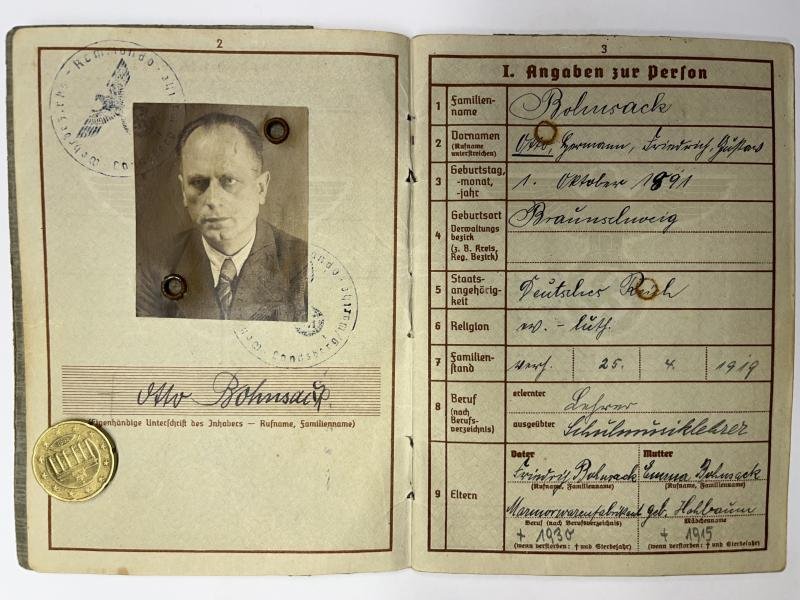 2
Otto Bohnsack
(Eigenhändige Unterschrift des Inhabers — Rufname, Familienname)
3
I. Angaben zur Person
1 Familien-
name
Bohnsack
2 Vornamen
(Rufname
unterstreichen)
Otto, Hermann, Friedrich, Gustav
3 Geburtstag,
-monat,
-jahr
1. Oktober 1891
4 Geburtsort
Verwaltungs
bezirk
(z. B. Kreis,
Reg. Bezirk)
Braunschweig
5 Staats-
angehörig-
keit
Deutsches Reich
6 Religion
ev. - luth.
7 Familien-
stand
verh. 25. 4. 1919
8 Beruf
(nach
Berufs-
verzeichnis)
erlernter
Lehrer
ausgeübter
Schulmusiklehrer
9 Eltern
Vater Mutter
Friedrich Bohnsack Emma Bohnsack
(Rufname, Familienname) (Rufname, Familienname)
Marmorwarenfabrikant geb. Hohlbaum
Beruf (nach Berufsverzeichnis) Mädchenname
† 1930 † 1915
(wenn verstorben: † und Sterbejahr) (wenn verstorben: † und Sterbejahr)